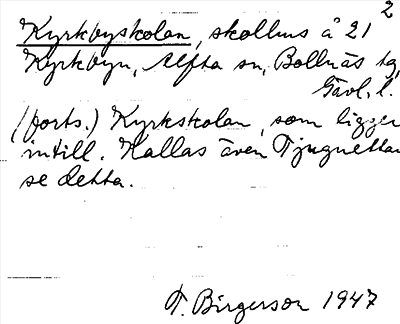 2
Kyrkbyskolan, skolhus å 21
Kyrkbyn, Alfta sn, Bollnäs tg,
Gävl. l.
(forts.) Kyrkskolan, som ligger
intill. Kallas även Tjugnettan
se detta.
T. Birgerson 1947